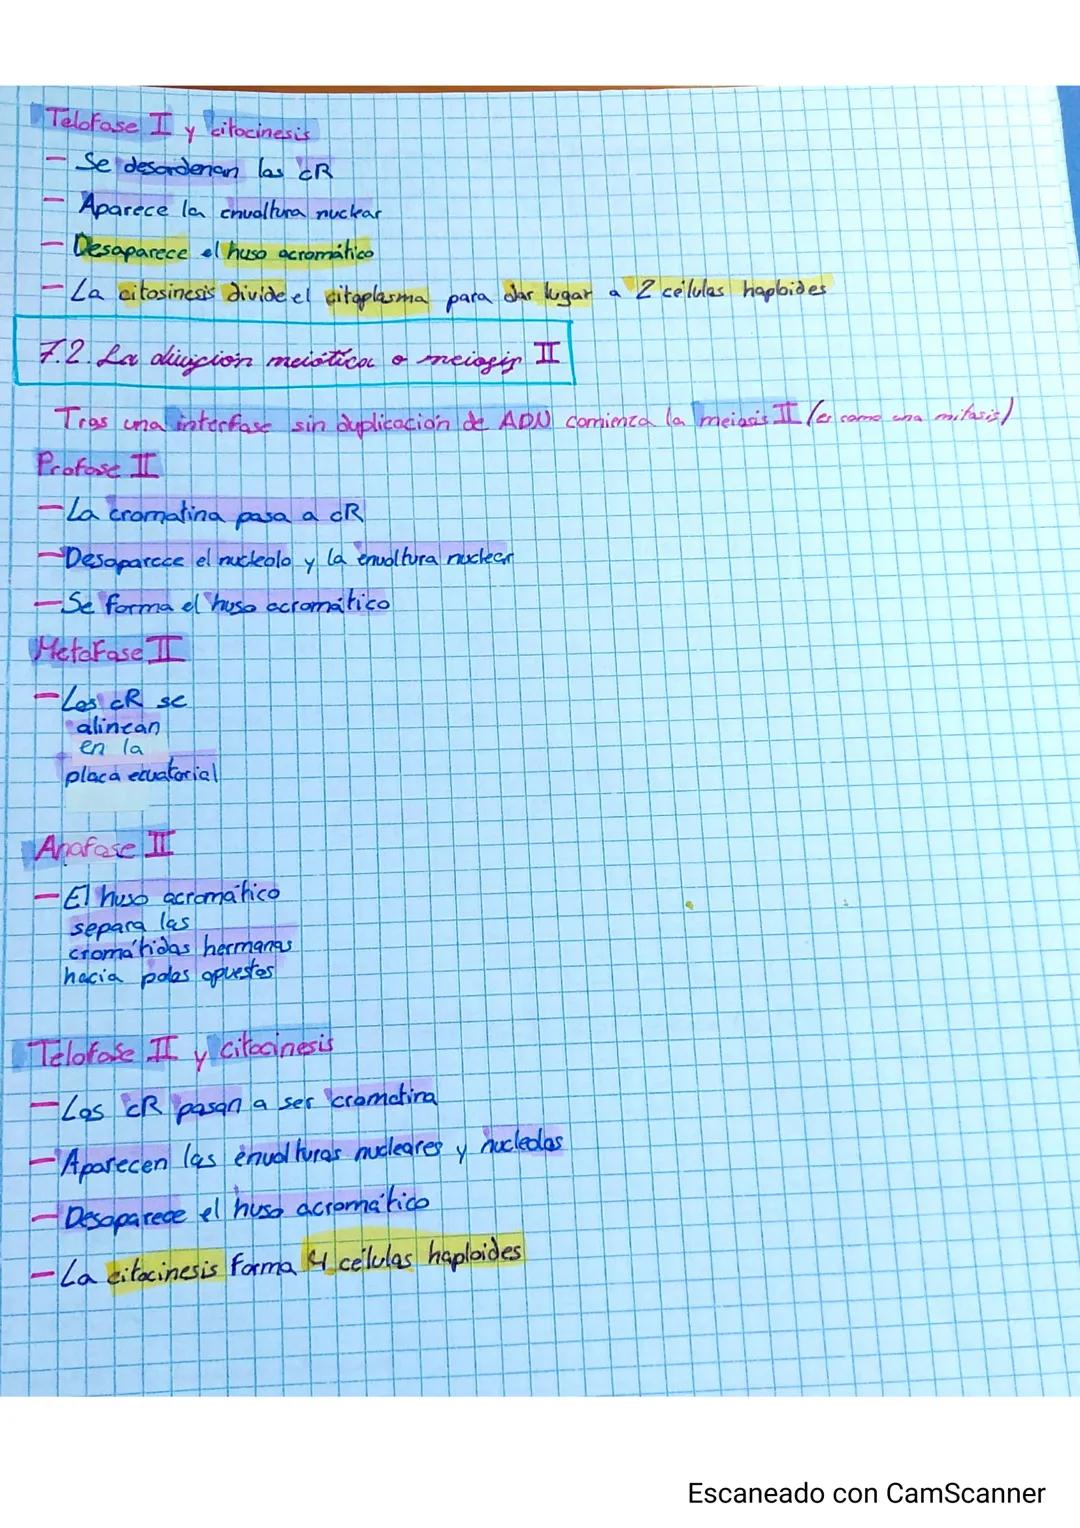 Telofase I y citocinesis
- Se desordenan las cR
- Aparece la envoltura nuclear
- Desaparece el huso acromático
- La citosinesis divide el citoplasma para dar lugar a 2 células haploides
7.2. La división meiótica o meiosis II
Tras una interfase sin duplicación de ADN comienza la meiosis II (es como una mitosis)
Profase II
- La cromatina pasa a cR
- Desaparece el nucleolo y la envoltura nuclear
- Se forma el huso acromático
Metafase II
- Los cR se
alinean
en la
placa ecuatorial
Anafase II
- El huso acromático
separa las
cromátidas hermanas
hacia polos opuestos
Telofase II y citocinesis
- Los cR pasan a ser cromatina
- Aparecen las envolturas nucleares y nucleolos
- Desaparece el huso acromático
- La citocinesis forma 4 células haploides
Escaneado con CamScanner